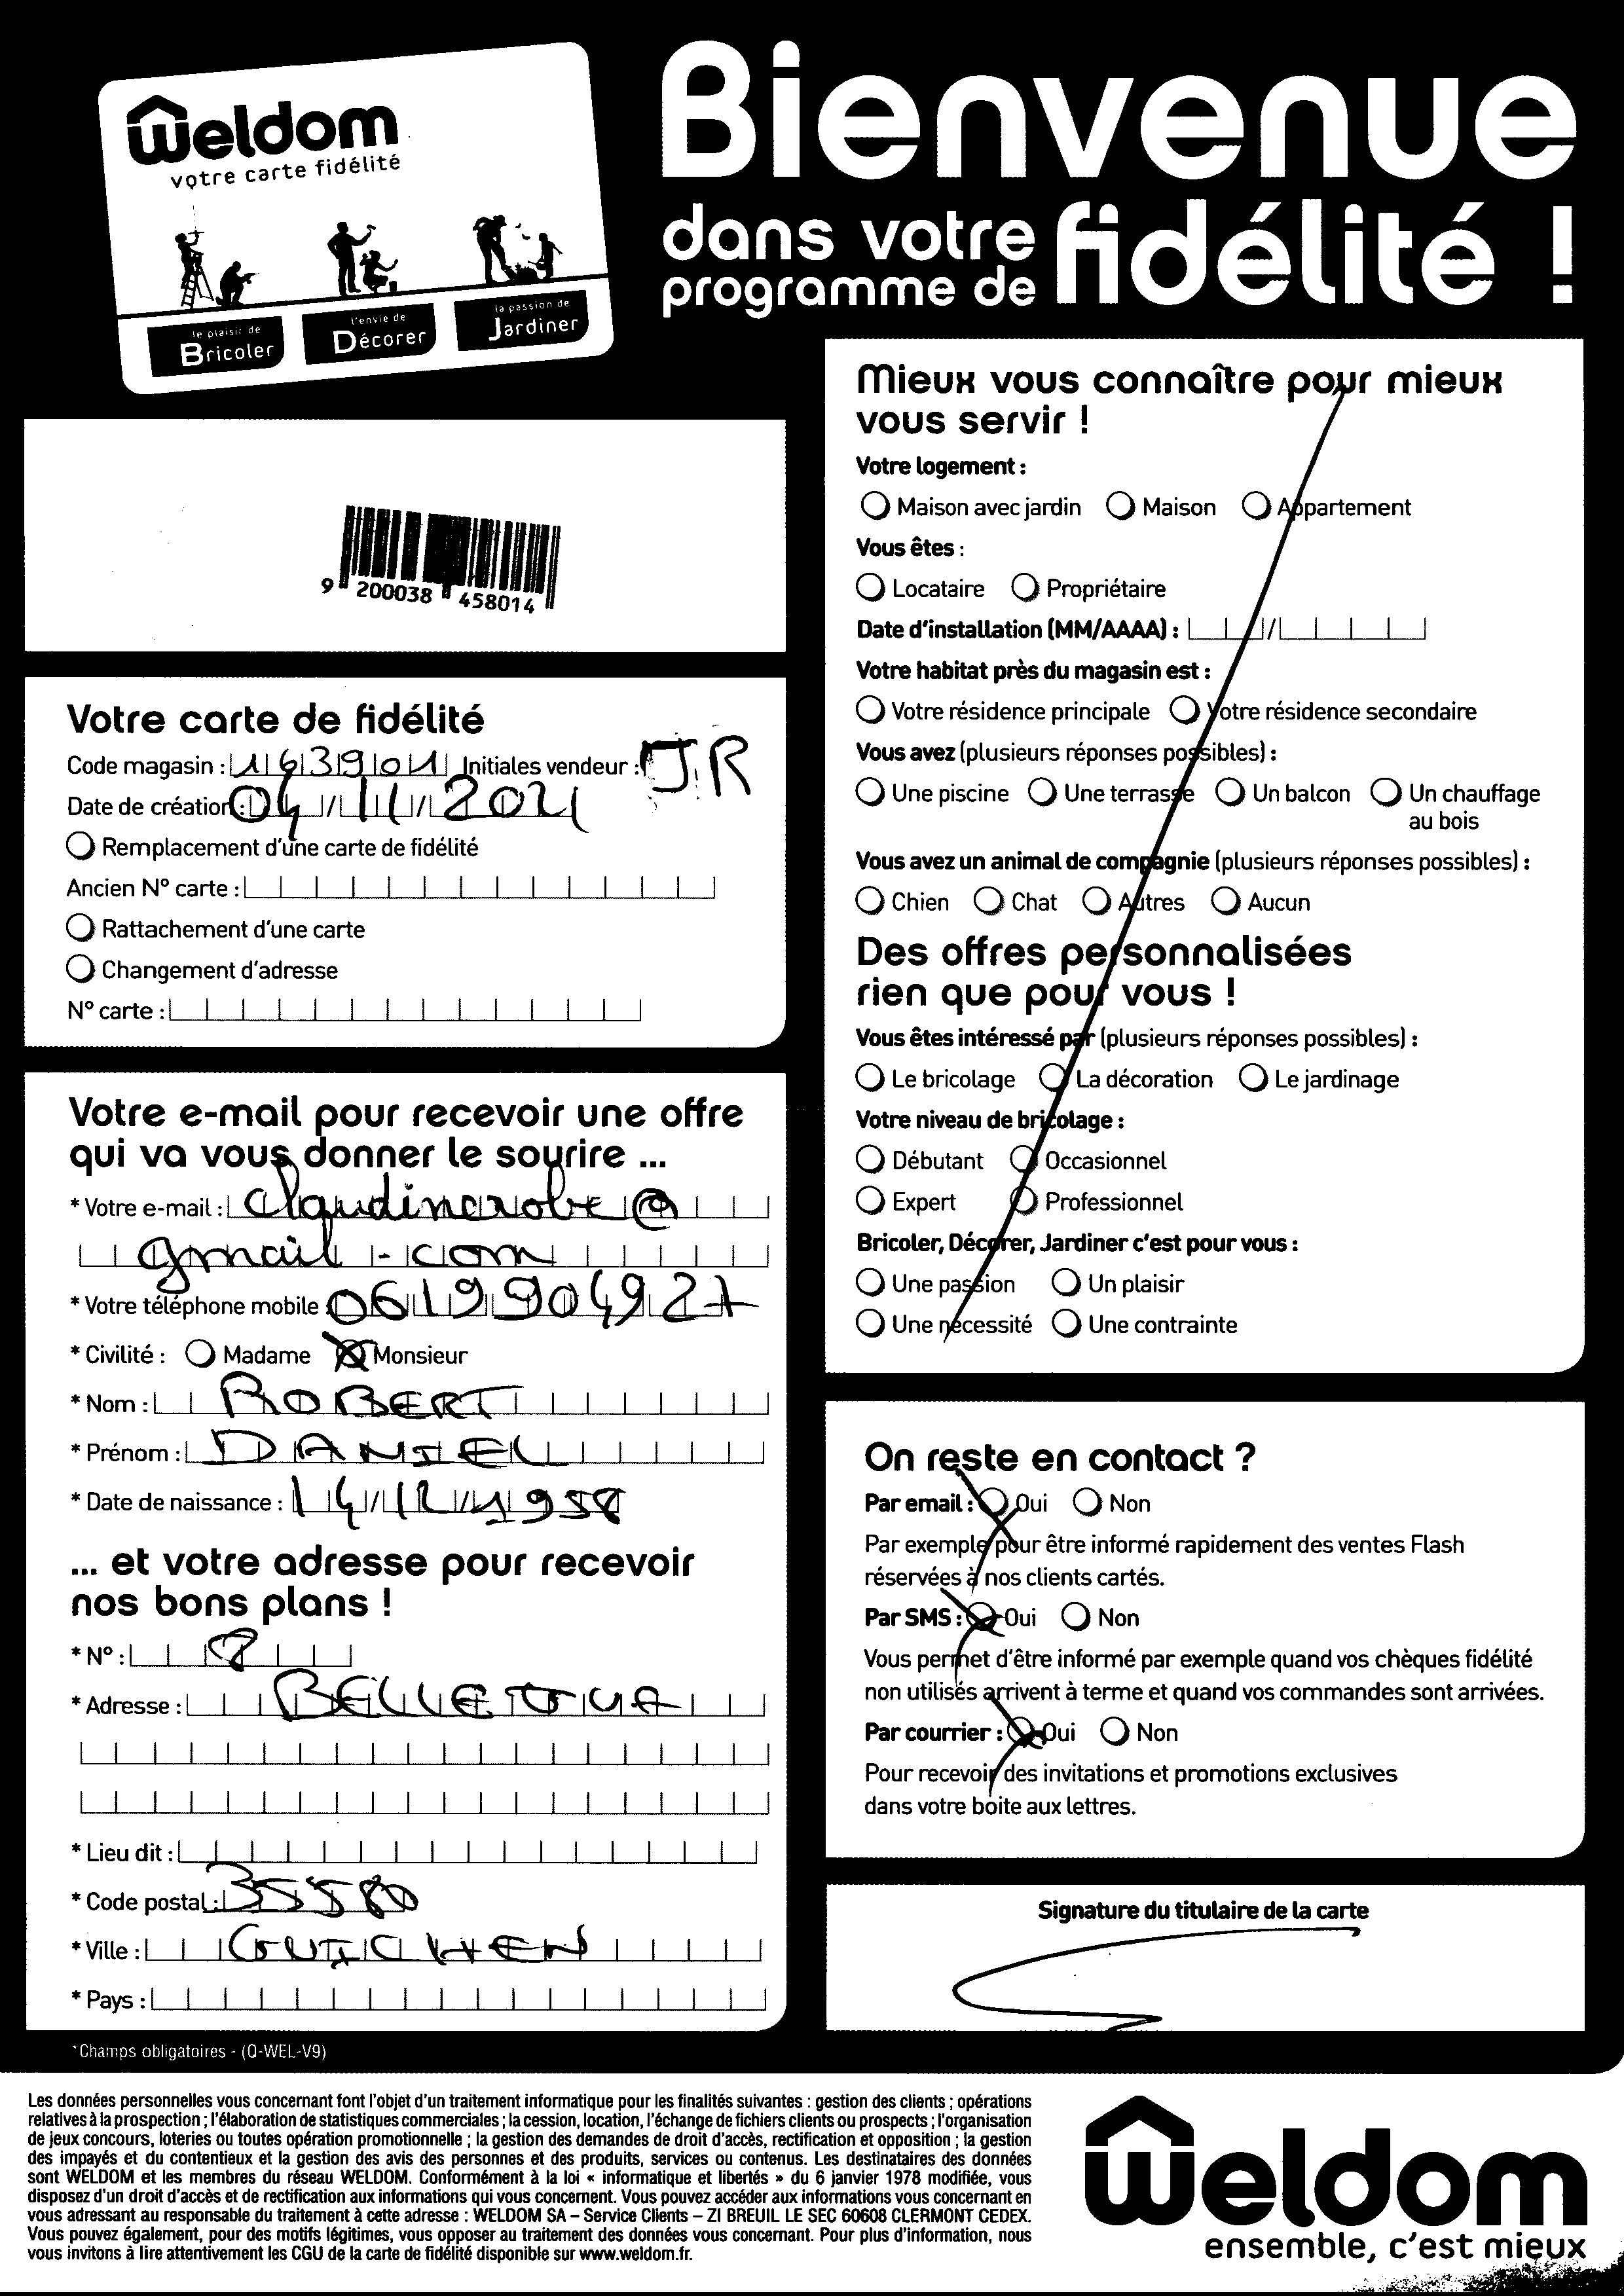 Weldom
votre carte fidélité
le plaisir de
Bricoler
l'envie de
Décorer
la passion de
Jardiner
Bienvenue
dans votre
programme de fidélité !
9 200038 458014
Votre carte de fidélité
Code magasin : 163901 Initiales vendeur : JR
Date de création : 04/11/2021
Remplacement d'une carte de fidélité
Ancien N° carte :
Rattachement d'une carte
Changement d'adresse
N° carte :
Votre e-mail pour recevoir une offre
qui va vous donner le sourire ...
* Votre e-mail : claudinerobe@
gmail.com
* Votre téléphone mobile 0619904927
* Civilité : Madame Monsieur
* Nom : ROBERT
* Prénom : DANIEL
* Date de naissance : 14/12/1958
... et votre adresse pour recevoir
nos bons plans !
* N° : 8
* Adresse :
* Lieu dit :
* Code postal : 35580
* Ville : GUICHEN
* Pays :
*Champs obligatoires - (Q-WEL-V9)
Mieux vous connaître pour mieux
vous servir !
Votre logement :
Maison avec jardin Maison Appartement
Vous êtes :
Locataire Propriétaire
Date d'installation (MM/AAAA) : /
Votre habitat près du magasin est :
Votre résidence principale Votre résidence secondaire
Vous avez (plusieurs réponses possibles) :
Une piscine Une terrasse Un balcon Un chauffage
au bois
Vous avez un animal de compagnie (plusieurs réponses possibles) :
Chien Chat Autres Aucun
Des offres personnalisées
rien que pour vous !
Vous êtes intéressé par (plusieurs réponses possibles) :
Le bricolage La décoration Le jardinage
Votre niveau de bricolage :
Débutant Occasionnel
Expert Professionnel
Bricoler, Décorer, Jardiner c'est pour vous :
Une passion Un plaisir
Une nécessité Une contrainte
On reste en contact ?
Par email : Oui Non
Par exemple pour être informé rapidement des ventes Flash
réservées à nos clients cartés.
Par SMS : Oui Non
Vous permet d'être informé par exemple quand vos chèques fidélité
non utilisés arrivent à terme et quand vos commandes sont arrivées.
Par courrier : Oui Non
Pour recevoir des invitations et promotions exclusives
dans votre boite aux lettres.
Signature du titulaire de la carte
Les données personnelles vous concernant font l'objet d'un traitement informatique pour les finalités suivantes : gestion des clients ; opérations
relatives à la prospection ; l'élaboration de statistiques commerciales ; la cession, location, l'échange de fichiers clients ou prospects ; l'organisation
de jeux concours, loteries ou toutes opération promotionnelle ; la gestion des demandes de droit d'accès, rectification et opposition ; la gestion
des impayés et du contentieux et la gestion des avis des personnes et des produits, services ou contenus. Les destinataires des données
sont WELDOM et les membres du réseau WELDOM. Conformément à la loi « informatique et libertés » du 6 janvier 1978 modifiée, vous
disposez d'un droit d'accès et de rectification aux informations qui vous concernent. Vous pouvez accéder aux informations vous concernant en
vous adressant au responsable du traitement à cette adresse : WELDOM SA – Service Clients – ZI BREUIL LE SEC 60608 CLERMONT CEDEX.
Vous pouvez également, pour des motifs légitimes, vous opposer au traitement des données vous concernant. Pour plus d'information, nous
vous invitons à lire attentivement les CGU de la carte de fidélité disponible sur www.weldom.fr.
Weldom
ensemble, c'est mieux